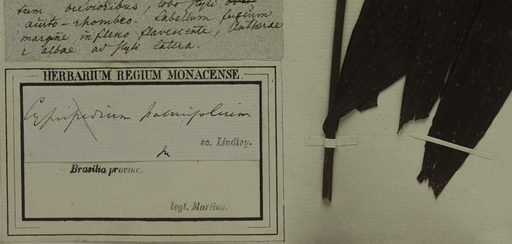 tum brevioribus, lobo styli
acuto-rhombeo. Labellum fuscum
margine inflexo flavescente, Antherae
2 albae ad styli latera.
HERBARIUM REGIUM MONACENSE.
Cypripedium palmifolium
sec. Lindley.
Brasilia provinc.
legt. Martius.